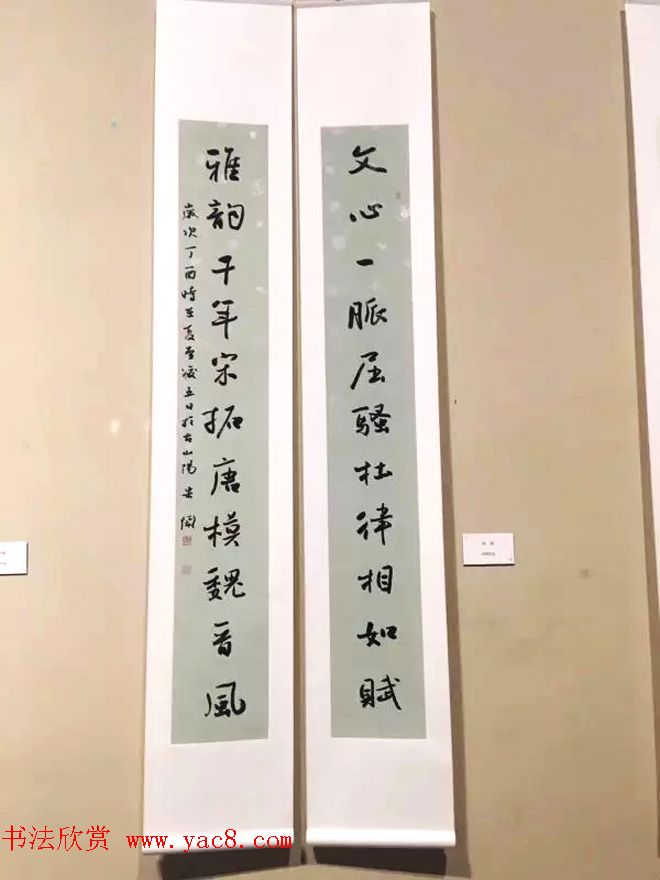 文心一脈屈騷杜律相如賦
雅韵千年宋拓唐模魏晉風
歲次丁酉時在夏至後五日於古山陽
书法欣赏 www.yac8.com